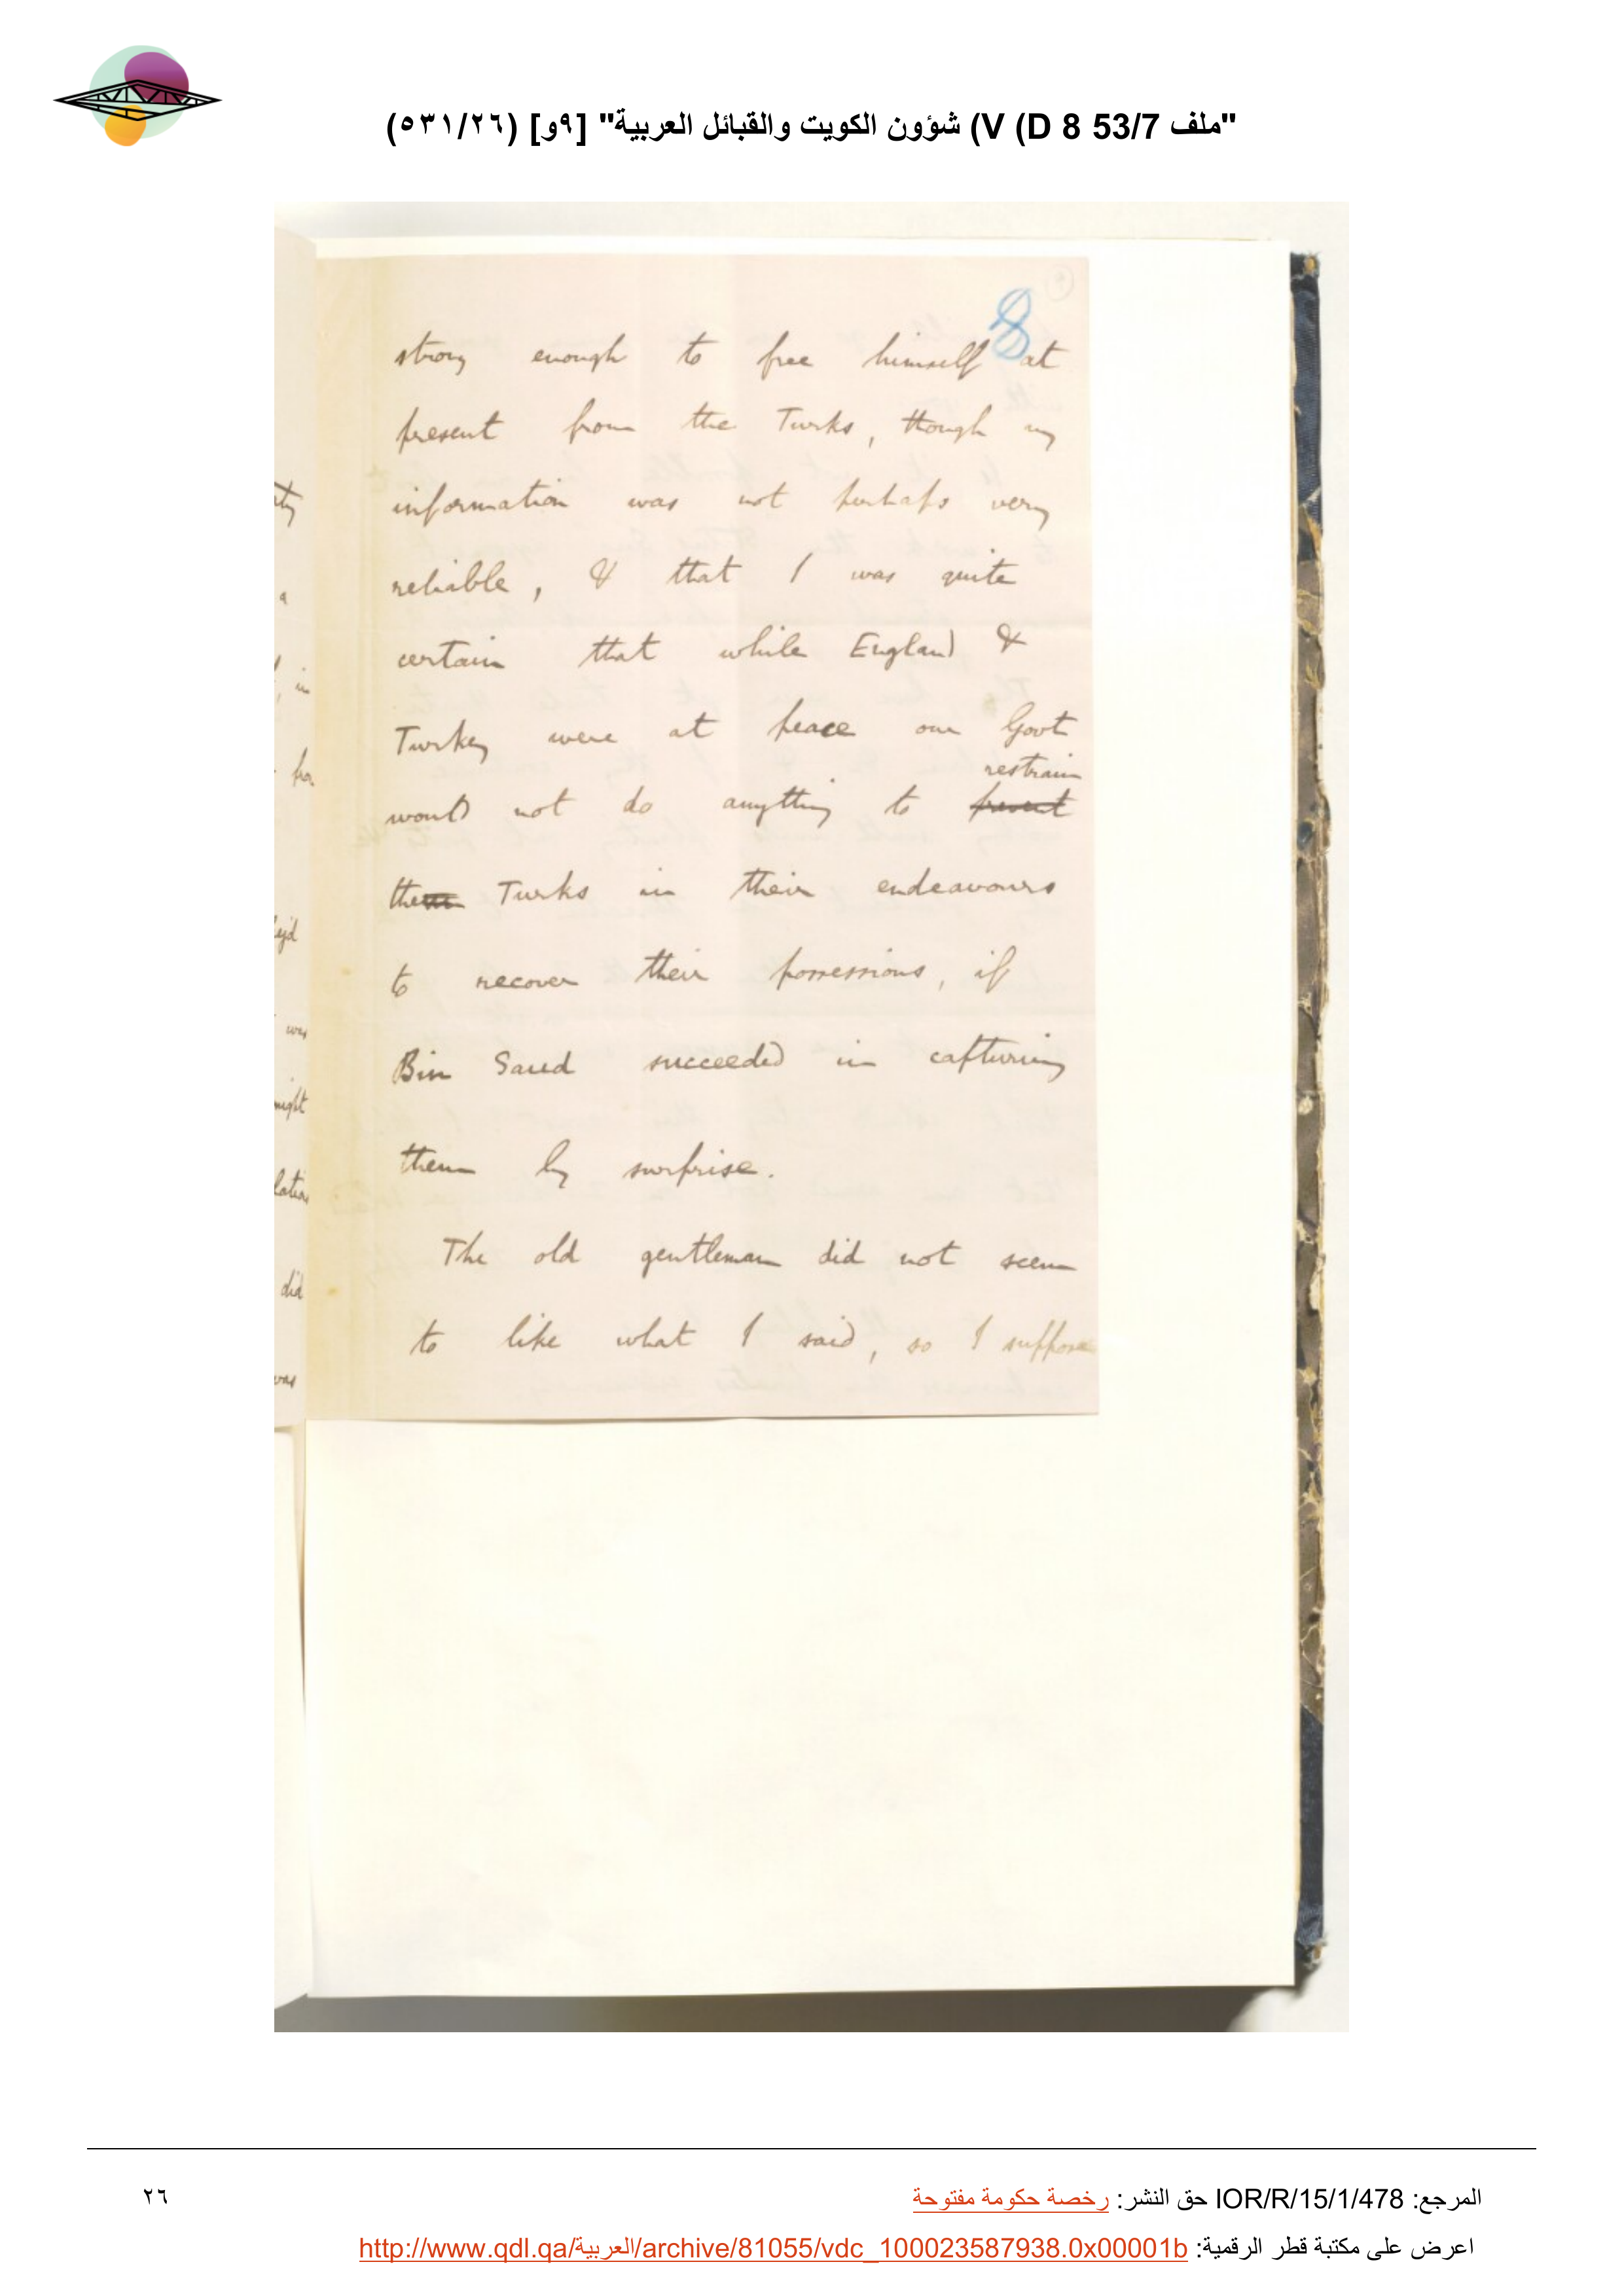 "ملف 53/7 V (D 8) شؤون الكويت والقبائل العربية" [٩و] (٥٣١/٢٦)
8
strong enough to free himself at
present from the Turks, though my
information was not perhaps very
reliable, & that I was quite
certain that while England &
Turkey were at peace our Govt
restrain
would not do anything to prevent
them Turks in their endeavours
to recover their possessions, if
Bin Saud succeeded in capturing
them by surprise.
The old gentleman did not seem
to like what I said, so I suppose
المرجع: IOR/R/15/1/478 حق النشر: رخصة حكومة مفتوحة
٢٦
اعرض على مكتبة قطر الرقمية: http://www.qdl.qa/العربية/archive/81055/vdc_100023587938.0x00001b